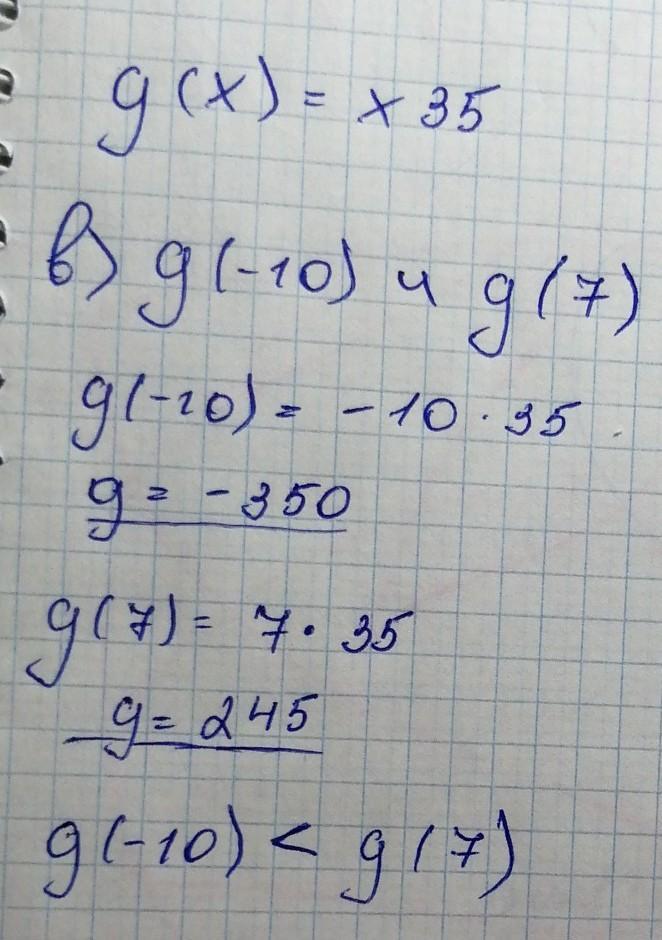 g(x) = x 35
в) g(-10) и g(7)
g(-10) = -10 · 35
g = -350
g(7) = 7 · 35
g = 245
g(-10) < g(7)